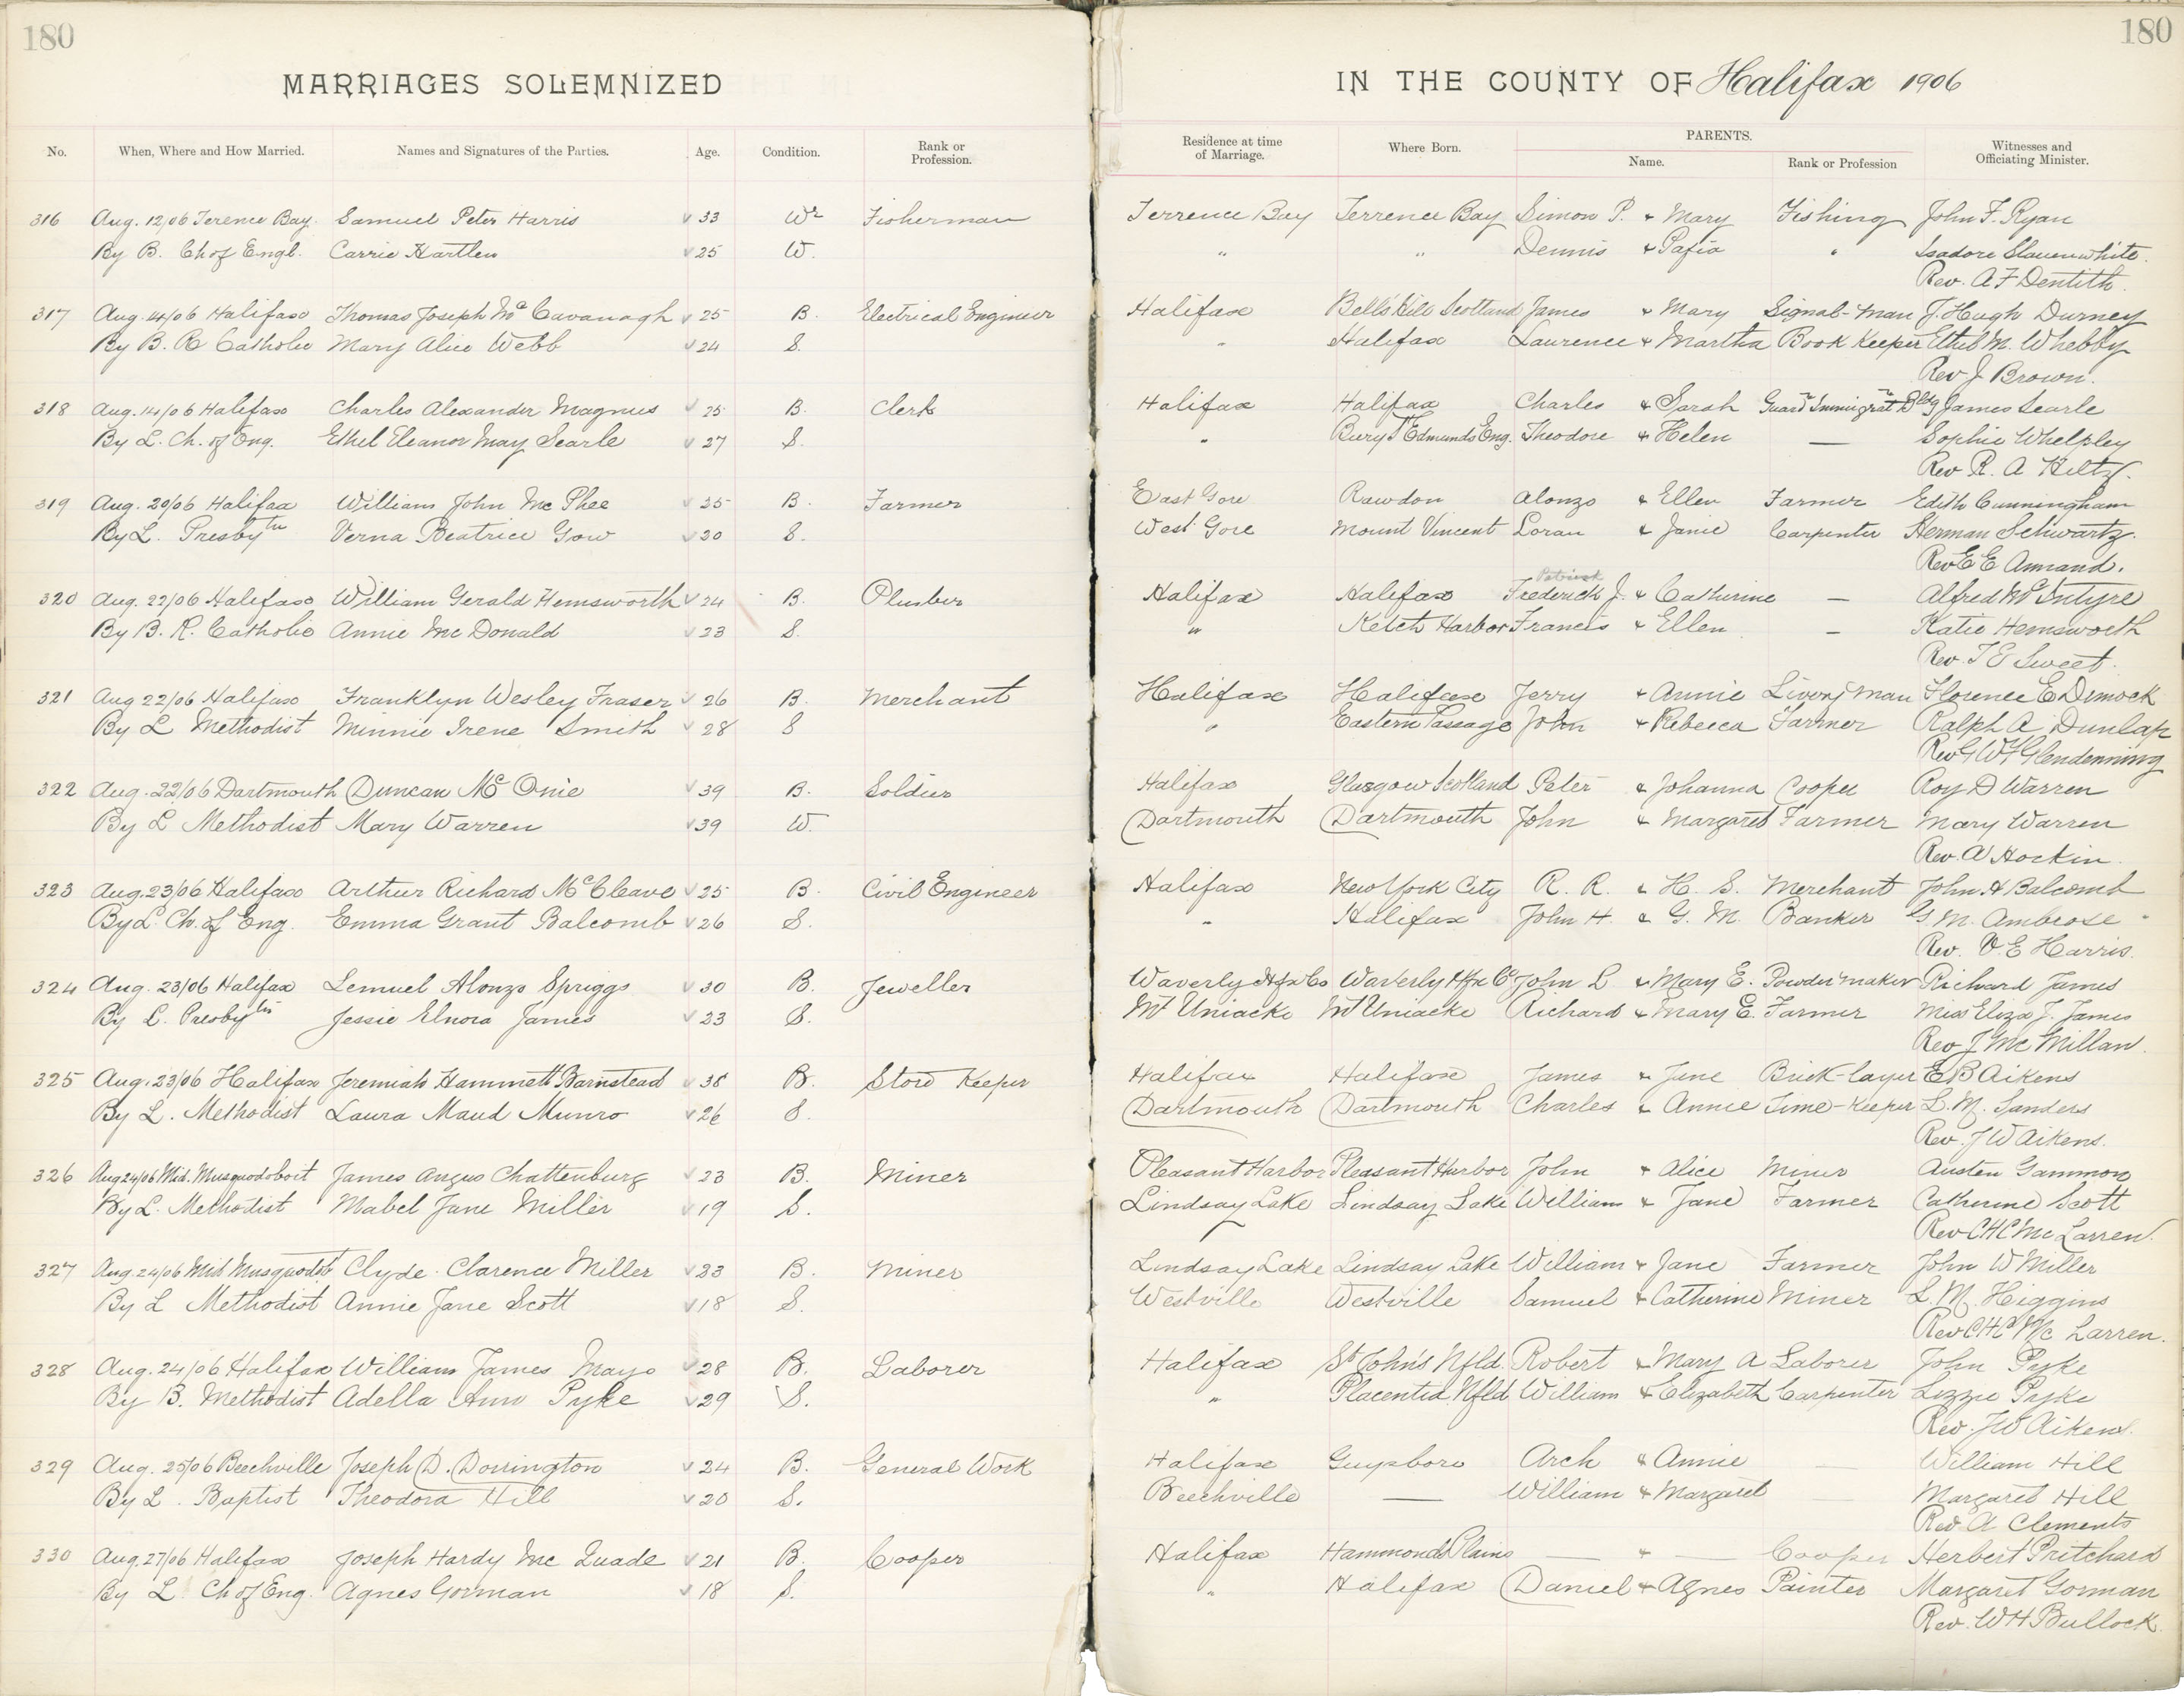 180
180
MARRIAGES SOLEMNIZED
IN THE COUNTY OF Halifax 1906
No. When, Where and How Married. Names and Signatures of the Parties. Age. Condition. Rank or Profession. Residence at time of Marriage. Where Born. PARENTS. Name. Rank or Profession Witnesses and Officiating Minister.
316 Aug. 12/06 Terence Bay. Samuel Peter Harris 33 Wr Fisherman Terrence Bay Terrence Bay Simon P. & Mary Fishing John F. Ryan
By B. Ch of Engl. Carrie Hartlen 25 W. " " Dennis & Pafia " Isadore Slauenwhite.
Rev. A F Dentith.
317 Aug. 14/06 Halifax Thomas Joseph Mc Cavanagh 25 B. Electrical Engineer Halifax Bell's Hill Scotland James & Mary Signal-man J. Hugh Durney
By B. R Catholic Mary Alice Webb 24 S. " Halifax Laurence & Martha Book Keeper Ethel M. Whebby
Rev J Brown.
318 Aug. 14/06 Halifax Charles Alexander Magnus 25 B. Clerk Halifax Halifax Charles & Sarah Guard Immigratn Bldg James Searle
By L. Ch. of Eng. Ethel Eleanor May Searle 27 S. " Bury St Edmunds Eng. Theodore & Helen — Sophie Whelpley
Rev R. A Hiltz.
319 Aug. 20/06 Halifax William John Mc Phee 35 B. Farmer East Gore Rawdon Alonzo & Ellen Farmer Edith Cunningham
By L. Presbytn Verna Beatrice Gow 20 S. West Gore Mount Vincent Loran & Janie Carpenter Herman Schwartz.
Rev E E Annand.
Patrick
320 Aug. 22/06 Halifax William Gerald Hemsworth 24 B. Plumber Halifax Halifax Frederick J. & Catherine — Alfred McIntyre
By B. R. Catholic Annie Mc Donald 23 S. " Ketch Harbor Francis & Ellen — Katie Hemsworth
Rev. T E Sweet.
321 Aug 22/06 Halifax Franklyn Wesley Fraser 26 B. Merchant Halifax Halifax Jerry & Annie Livery man Florence E Dimock
By L Methodist Minnie Irene Smith 28 S " Eastern Passage John & Rebecca Farmer Ralph A Dunlap
Rev G W F Glendenning
322 Aug. 22/06 Dartmouth Duncan Mc Onie 39 B. Soldier Halifax Glasgow Scotland Peter & Johanna Cooper Roy D Warren
By L Methodist Mary Warren 39 W. Dartmouth Dartmouth John & Margaret Farmer Mary Warren
Rev. A Hockin.
323 Aug. 23/06 Halifax Arthur Richard McCleave 25 B. Civil Engineer Halifax New York City R. R. & H. S. Merchant John H Balcomb
By L. Ch. of Eng. Emma Grant Balcomb 26 S. " Halifax John H. & G. M. Banker G M. Ambrose
Rev. V E Harris.
324 Aug. 23/06 Halifax Lemuel Alonzo Spriggs 30 B. Jeweller Waverly Hfx Co Waverly Hfx Co John L & Mary E. Powder maker Richard James
By L. Presbytn Jessie Elnora James 23 S. Mt Uniacke Mt Uniacke Richard & Mary E. Farmer Miss Eliza J. James
Rev J Mc Millan.
325 Aug. 23/06 Halifax Jeremiah Hammett Barnstead 38 B. Store Keeper Halifax Halifax James & Jane Brick-layer E B Aikens
By L. Methodist Laura Maud Munro 26 S. Dartmouth Dartmouth Charles & Annie Time-keeper L. M. Sanders
Rev. J W Aikens.
326 Aug 24/06 Mid. Musquodoboit James Angus Chattenburg 23 B. Miner Pleasant Harbor Pleasant Harbor John & Alice Miner Austen Gammon
By L. Methodist Mabel Jane Miller 19 S. Lindsay Lake Lindsay Lake William & Jane Farmer Catherine Scott
Rev C H C Mc Larren.
327 Aug. 24/06 Mid Musquodobt Clyde Clarence Miller 23 B. Miner Lindsay Lake Lindsay Lake William & Jane Farmer John W Miller
By L Methodist Annie Jane Scott 18 S. Westville Westville Samuel & Catherine Miner L. M. Higgins
Rev C H C Mc Larren.
328 Aug. 24/06 Halifax William James Mayo 28 B. Laborer Halifax St John's Nfld. Robert & Mary A Laborer John Pyke
By B. Methodist Adella Ann Pyke 29 S. " Placentia Nfld William & Elizabeth Carpenter Lizzie Pyke
Rev. J W Aikens.
329 Aug. 25/06 Beechville Joseph D. Dorrington 24 B. General Work Halifax Guysboro Arch & Annie — William Hill
By L. Baptist Theodora Hill 20 S. Beechville — William & Margaret — Margaret Hill
Rev. A Clements
330 Aug. 27/06 Halifax Joseph Hardy Mc Quade 21 B. Cooper Halifax Hammonds Plains — & — Cooper Herbert Pritchard
By L Ch of Eng. Agnes Gorman 18 S. " Halifax Daniel & Agnes Painter Margaret Gorman
Rev. W H Bullock.